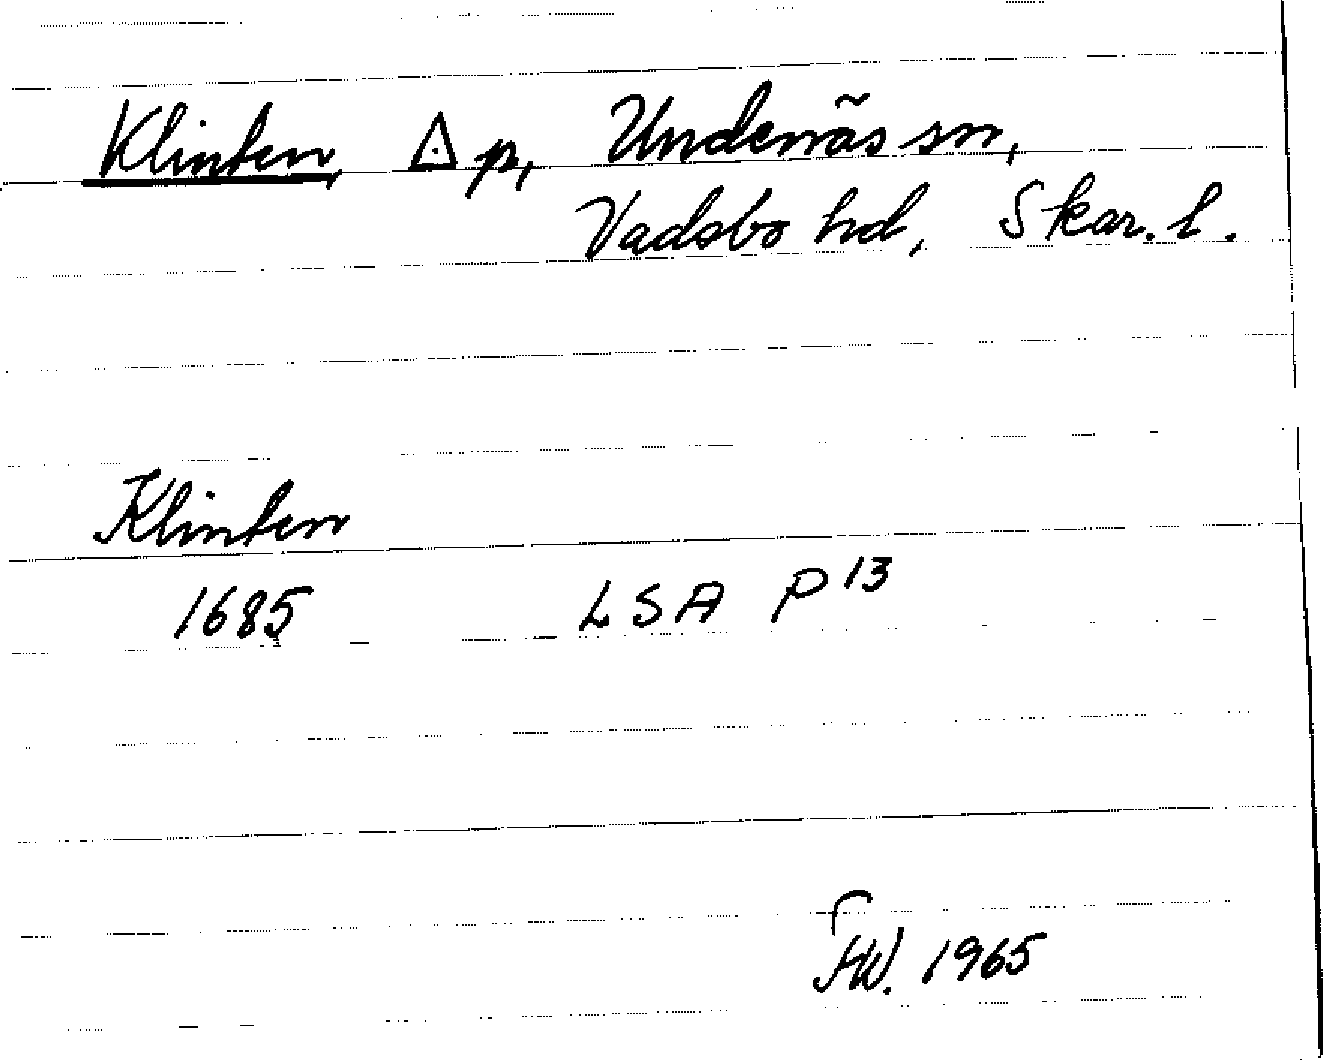 Klinten, △ p, Undenäs sn,
Vadsbo hd, Skar. l.
Klinten
1685 LSA P 13
1965